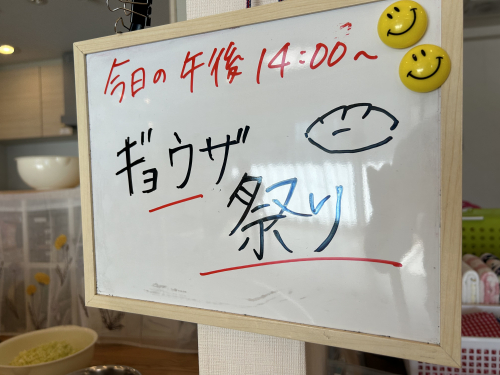 今日の午後14:00〜
ギョウザ
祭り